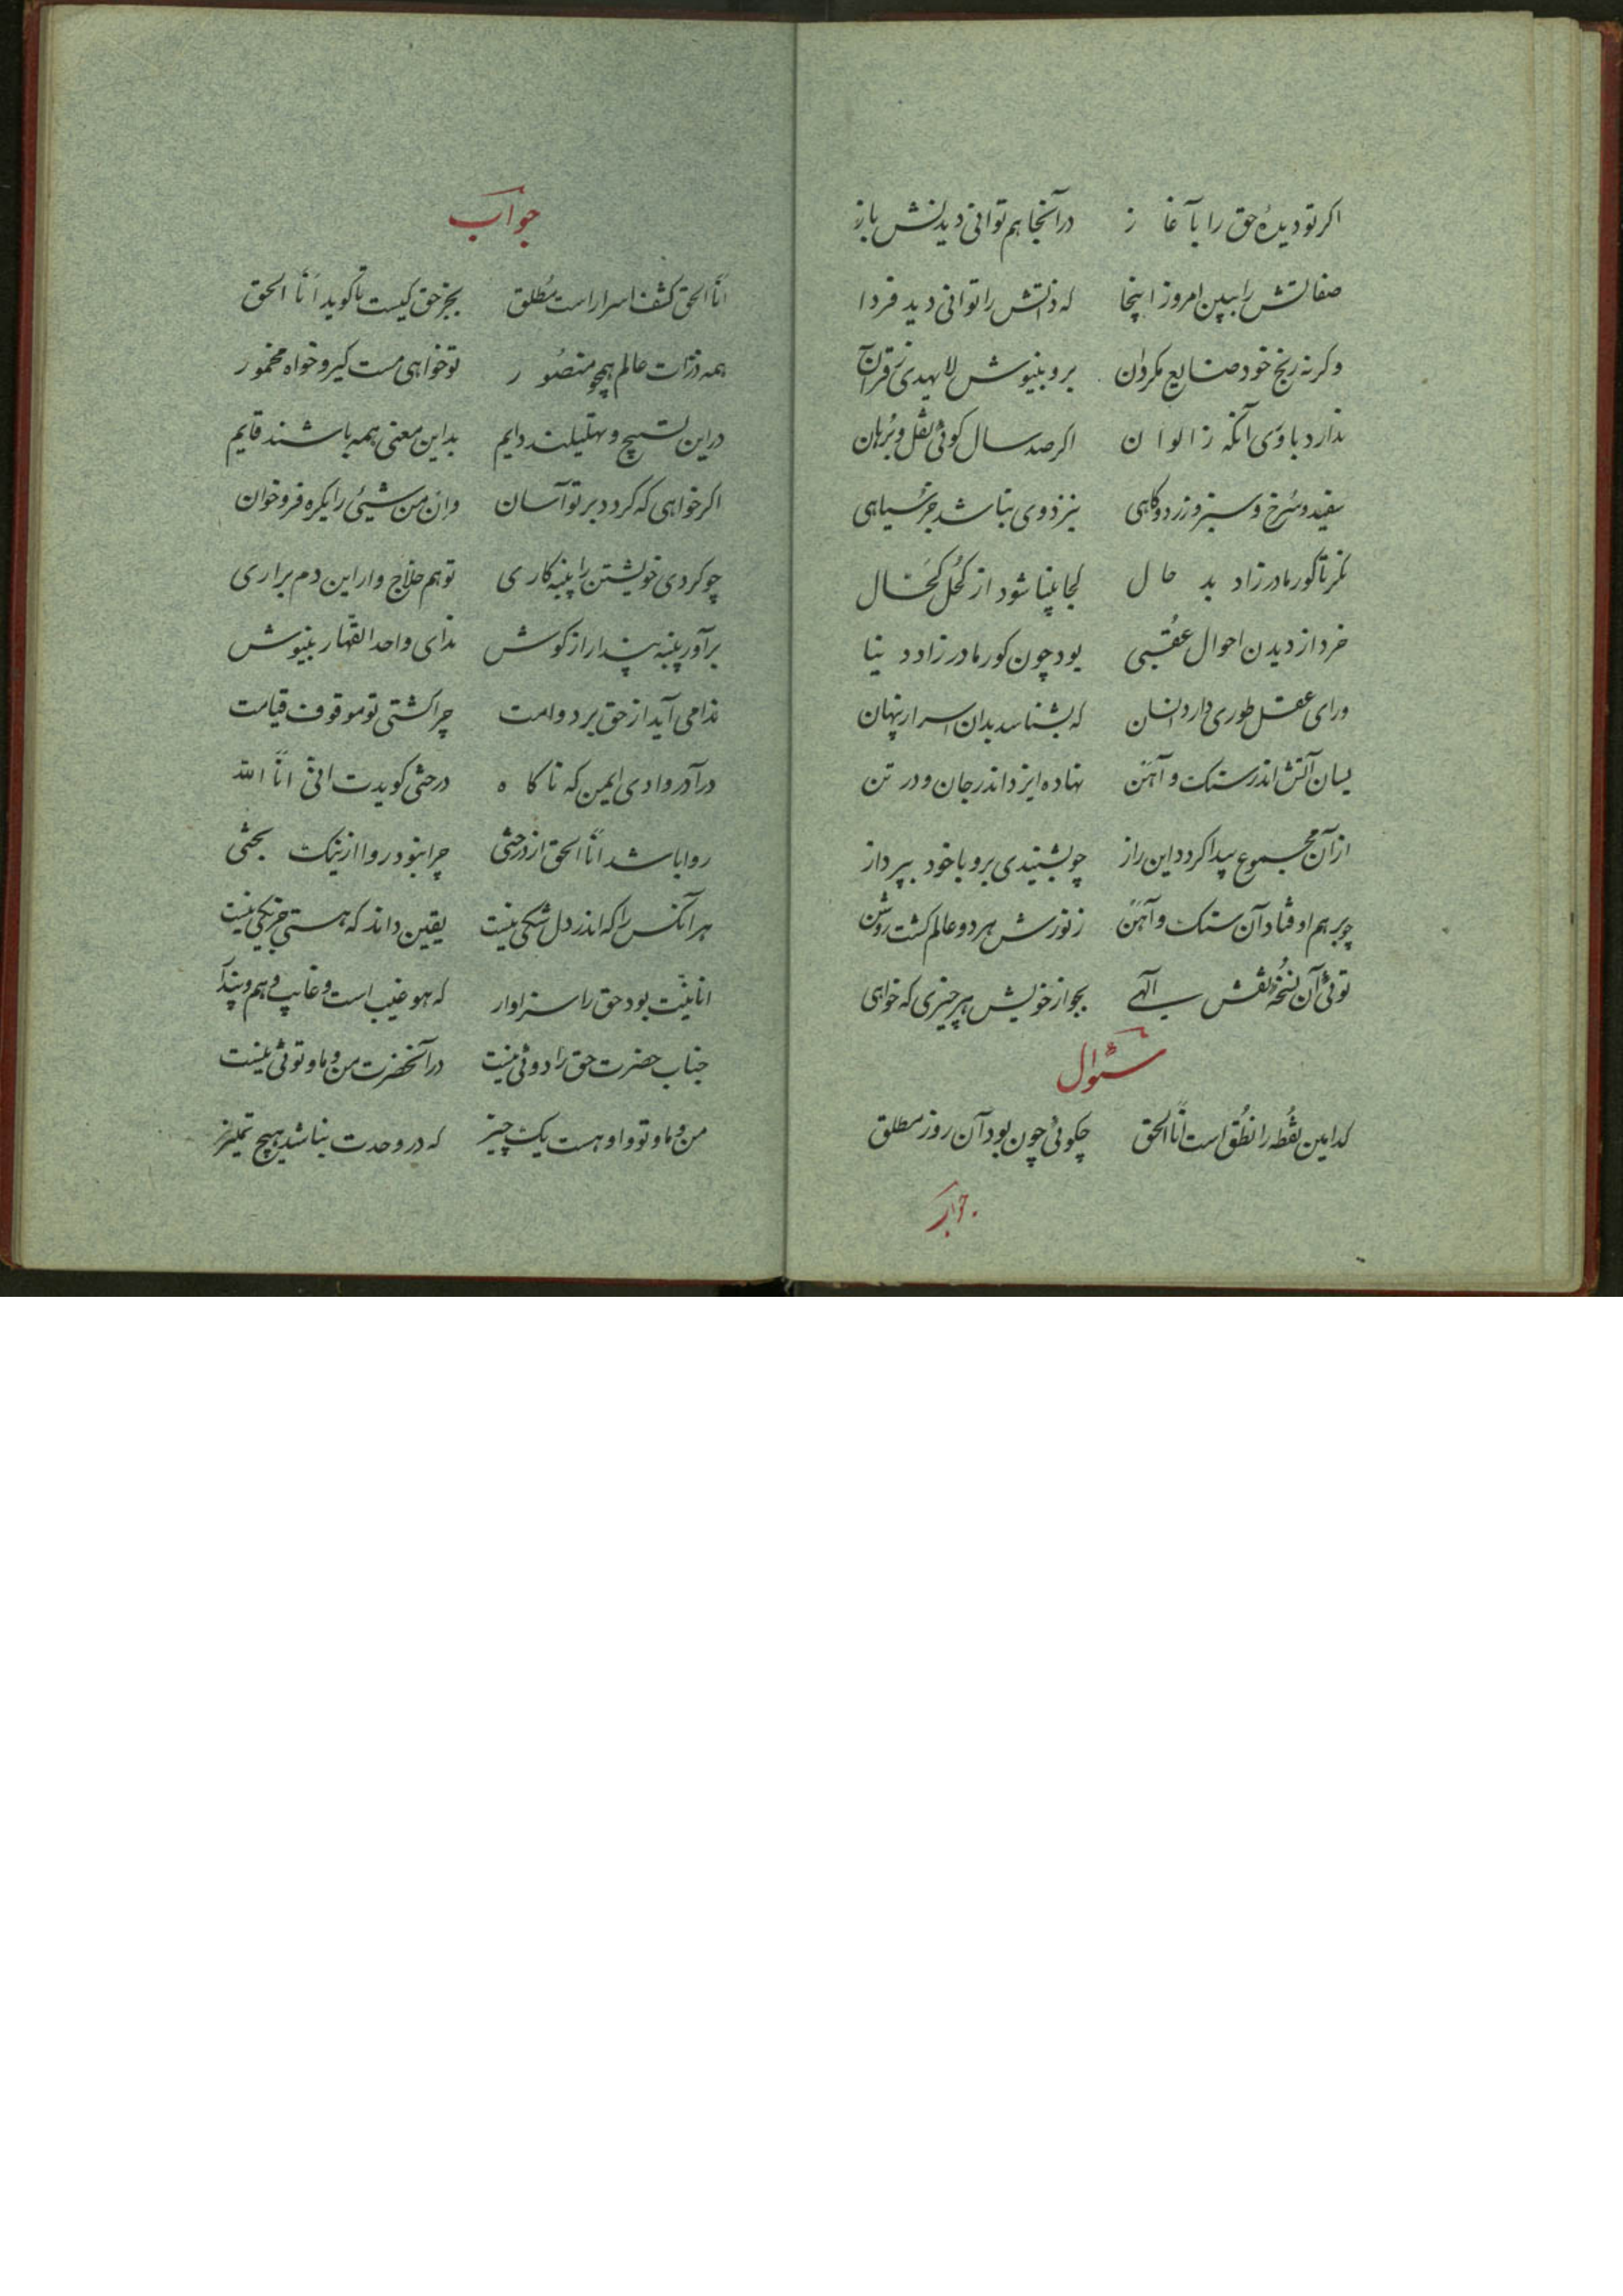 اکر تو دیدهٔ حق را بآغاز در آنجا هم توانی دیدنش باز
صفاتش را ببین امروز اینجا که ذاتش را توانی دید فردا
وکرنه رنج خود ضایع مکردان برو بنیوش لا یهدی ز قرآن
ندارد باوری آنکه ز الوان اکر صد سال کوئی نقل و برهان
سفید و سُرخ و سبز و زرد و کاهی بنزد وی نباشد جز سیاهی
نکر تا کور مادرزاد بد حال کجا بینا شود از کُحل کَحال
خرد از دیدن احوال عُقبی بود چون کور مادرزاد دنیا
ورای عقل طوری دارد انسان که بشناسد بدان اسرار پنهان
بسان آتش اندر سنک و آهن نهاده ایزد اندر جان و در تن
از آن مجموع پیدا کردد این راز چو بشنیدی برو با خود بپرداز
چو برهم اوفتاد آن سنک و آهن ز نورش هر دو عالم کشت روشن
توئی آن نسخهٔ نقش آلهی بجو از خویش هر چیزی که خواهی
سئوال
کدامین نقُطه را نطُق است انّا الحق چکوئی چون بود آن روز مطلق
جواب
جواب
انّا الحق کشف اسرار است مُطلق بجز حق کیست تا کوید انا الحق
همه ذرّات عالم همچو منصُور تو خواهی مست کیر و خواه مخمور
در این تسبیح و تهلیلند دایم بداین معنی همه باشند قایم
اکر خواهی که کردد بر تو آسان و ان من شیئی را یکره فرو خوان
چو کردی خویشتن را پنبه کاری تو هم حلّاج وار این دم براری
برآور پنبه پندار از کوش ندای واحد القهّار بنیوش
ندا می آید از حق بر دوامت چرا کشتی تو موقوف قیامت
درآ در وادی ایمن که ناکاه درختی کویدت انّی انّا اللّه
روا باشد انّا الحق از درختی چرا نبود روا از نیک بختی
هر آنکس را که اندر دل شکی نیست یقین داند که هستی جز یکی نیست
انانیّت بود حق را سزاوار که هو غیب است و غایب وهم و پندار
جناب حضرت حق را دوئی نیست در آنحضرت من و ما و توئی نیست
من و ما و تو و او هست یک چیز که در وحدت نباشد هیچ تمییز